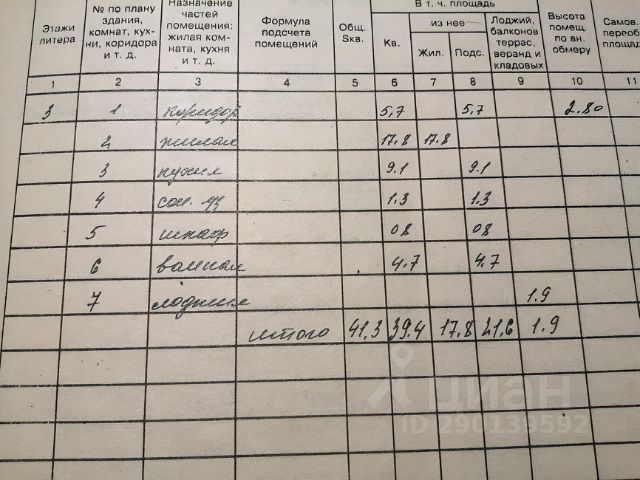 Этажи литера | № по плану здания, комнат, кухни, коридора и т. д. | Назначение частей помещения: жилая комната, кухня и т. д. | Формула подсчета помещений | Общ. Sкв. | В т. ч. площадь | Кв. | из нее | Жил. | Подс. | Лоджий, балконов террас, веранд и кладовых | Высота помещ. по вн. обмеру | Самов. переоб площад
1 | 2 | 3 | 4 | 5 | 6 | 7 | 8 | 9 | 10 | 11
3 | 1 | коридор | 5,7 | 5,7 | 2.80
2 | жилая | 17.8 | 17.8
3 | кухня | 9.1 | 9.1
4 | сан. уз | 1.3 | 1.3
5 | шкаф | 08 | 08
6 | ванная | 4.7 | 4.7
7 | лоджия | 1.9
итого | 41,3 | 39.4 | 17.8 | 21,6 | 1.9
циан
ID 290139592